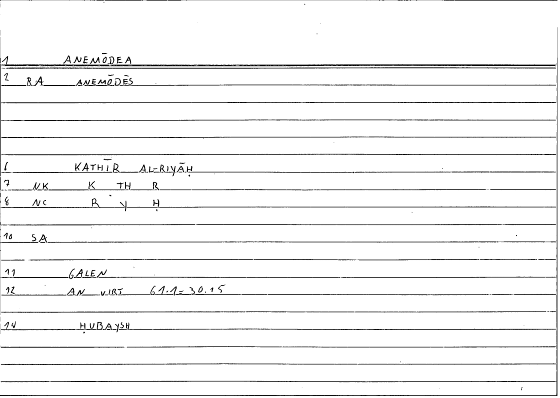 1 ANEMŌDEA
2 RA ANEMŌDĒS
6 KATHĪR AL-RIYĀḤ
7 NK K TH R
8 NC R Y Ḥ
10 SA
11 GALEN
12 AN VIRT 61.1 = 30.15
14 ḤUBAYSH